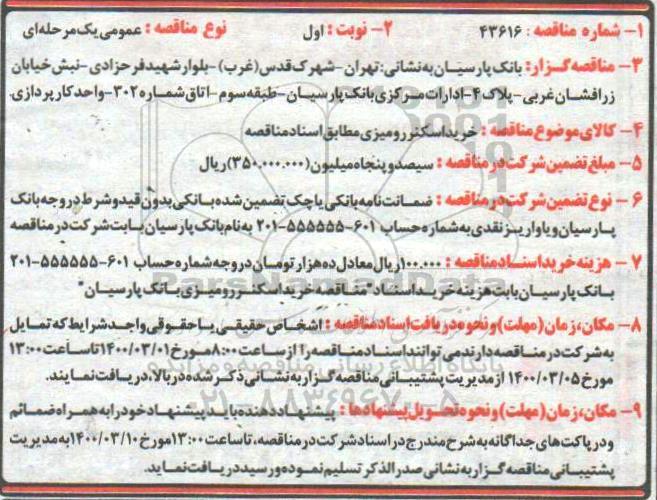 ۱- شماره مناقصه : ۴۳۶۱۶ ۲- نوبت : اول نوع مناقصه : عمومی یک مرحله‌ای
۳- مناقصه گزار: بانک پارسیان به نشانی: تهران - شهرک قدس (غرب) - بلوار شهید فرحزادی - نبش خیابان
زرافشان غربی - پلاک ۴ - ادارات مرکزی بانک پارسیان - طبقه سوم - اتاق شماره ۳۰۲ - واحد کارپردازی.
۴- کالای موضوع مناقصه : خرید اسکنر رومیزی مطابق اسناد مناقصه
۵- مبلغ تضمین شرکت در مناقصه : سیصد و پنجاه میلیون (۳۵۰.۰۰۰.۰۰۰) ریال
۶- نوع تضمین شرکت در مناقصه : ضمانت نامه بانکی یا چک تضمین شده بانکی بدون قید و شرط در وجه بانک
پارسیان و یا واریز نقدی به شماره حساب ۶۰۱-۵۵۵۵۵۵-۲۰۱ به نام بانک پارسیان بابت شرکت در مناقصه
۷- هزینه خرید اسناد مناقصه : ۱۰۰.۰۰۰ ریال معادل ده هزار تومان در وجه شماره حساب ۶۰۱-۵۵۵۵۵۵-۲۰۱
بانک پارسیان بابت هزینه خرید اسناد "مناقصه خرید اسکنر رومیزی بانک پارسیان"
۸- مکان، زمان (مهلت) و نحوه دریافت اسناد مناقصه : اشخاص حقیقی یا حقوقی واجد شرایط که تمایل
به شرکت در مناقصه دارند می توانند اسناد مناقصه را از ساعت ۸:۰۰ مورخ ۱۴۰۰/۰۳/۰۱ تا ساعت ۱۳:۰۰
مورخ ۱۴۰۰/۰۳/۰۵ از مدیریت پشتیبانی مناقصه گزار به نشانی ذکر شده در بالا، دریافت نمایند.
۹- مکان، زمان (مهلت) و نحوه تحویل پیشنهادها : پیشنهاد دهنده باید پیشنهاد خود را به همراه ضمائم
و در پاکت های جداگانه به شرح مندرج در اسناد شرکت در مناقصه، تا ساعت ۱۳:۰۰ مورخ ۱۴۰۰/۰۳/۱۰ به مدیریت
پشتیبانی مناقصه گزار به نشانی صدرالذکر تسلیم نموده و رسید دریافت نماید.
ParsNamadData
پایگاه اطلاع رسانی مناقصه و مزایده
۰۲۱-۸۸۳۴۹۶۷۰-۵